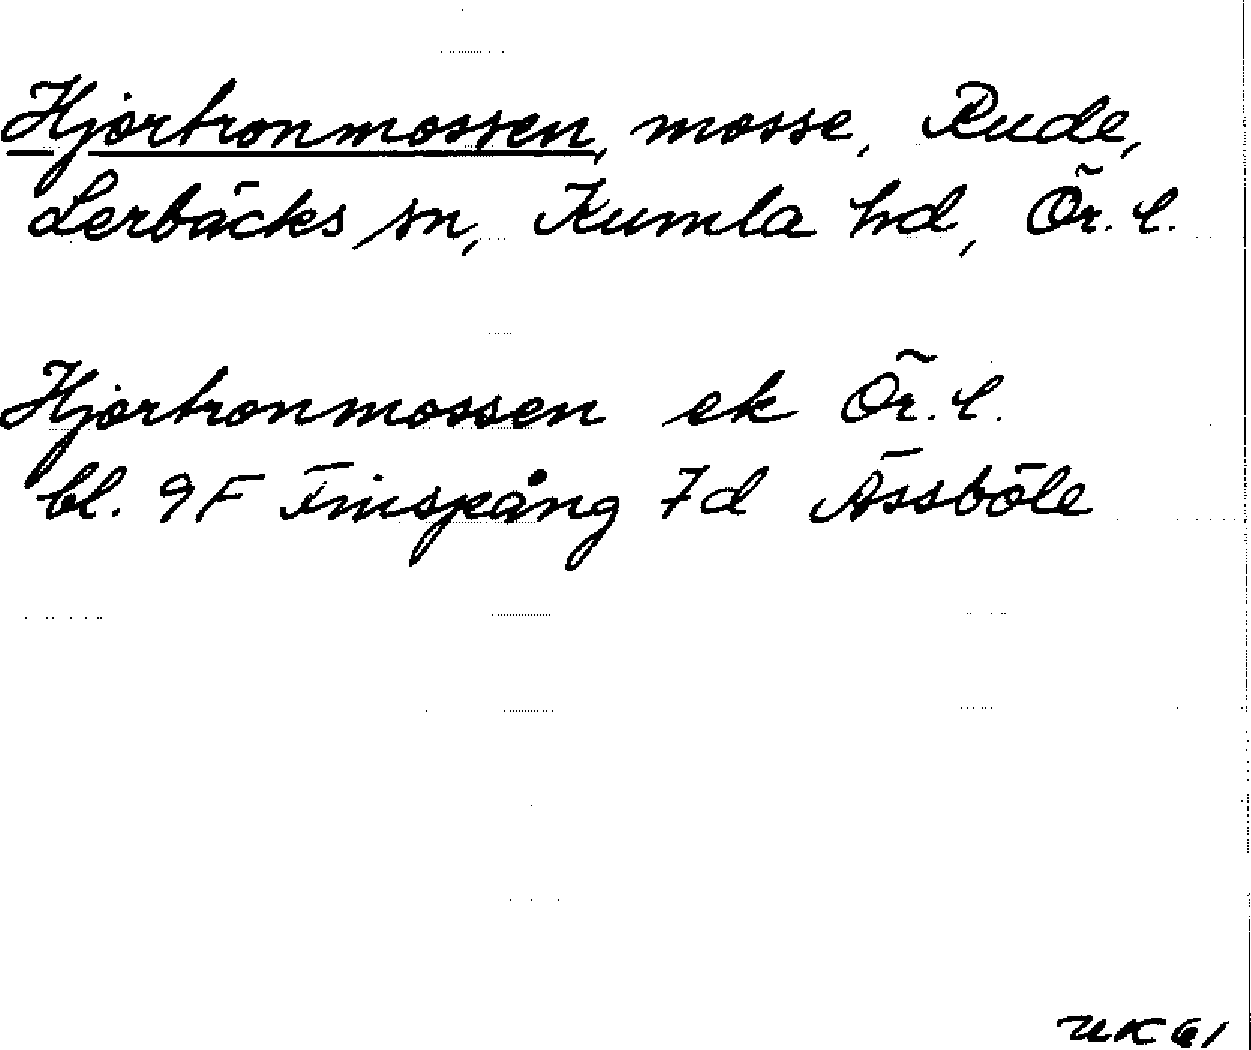 Hjortronmossen, mosse, Rude,
Lerbäcks sn, Kumla hd, Ör. l.
Hjortronmossen ek Ör. l.
bl. 9F Finspång 7d Åssböle
UK 61